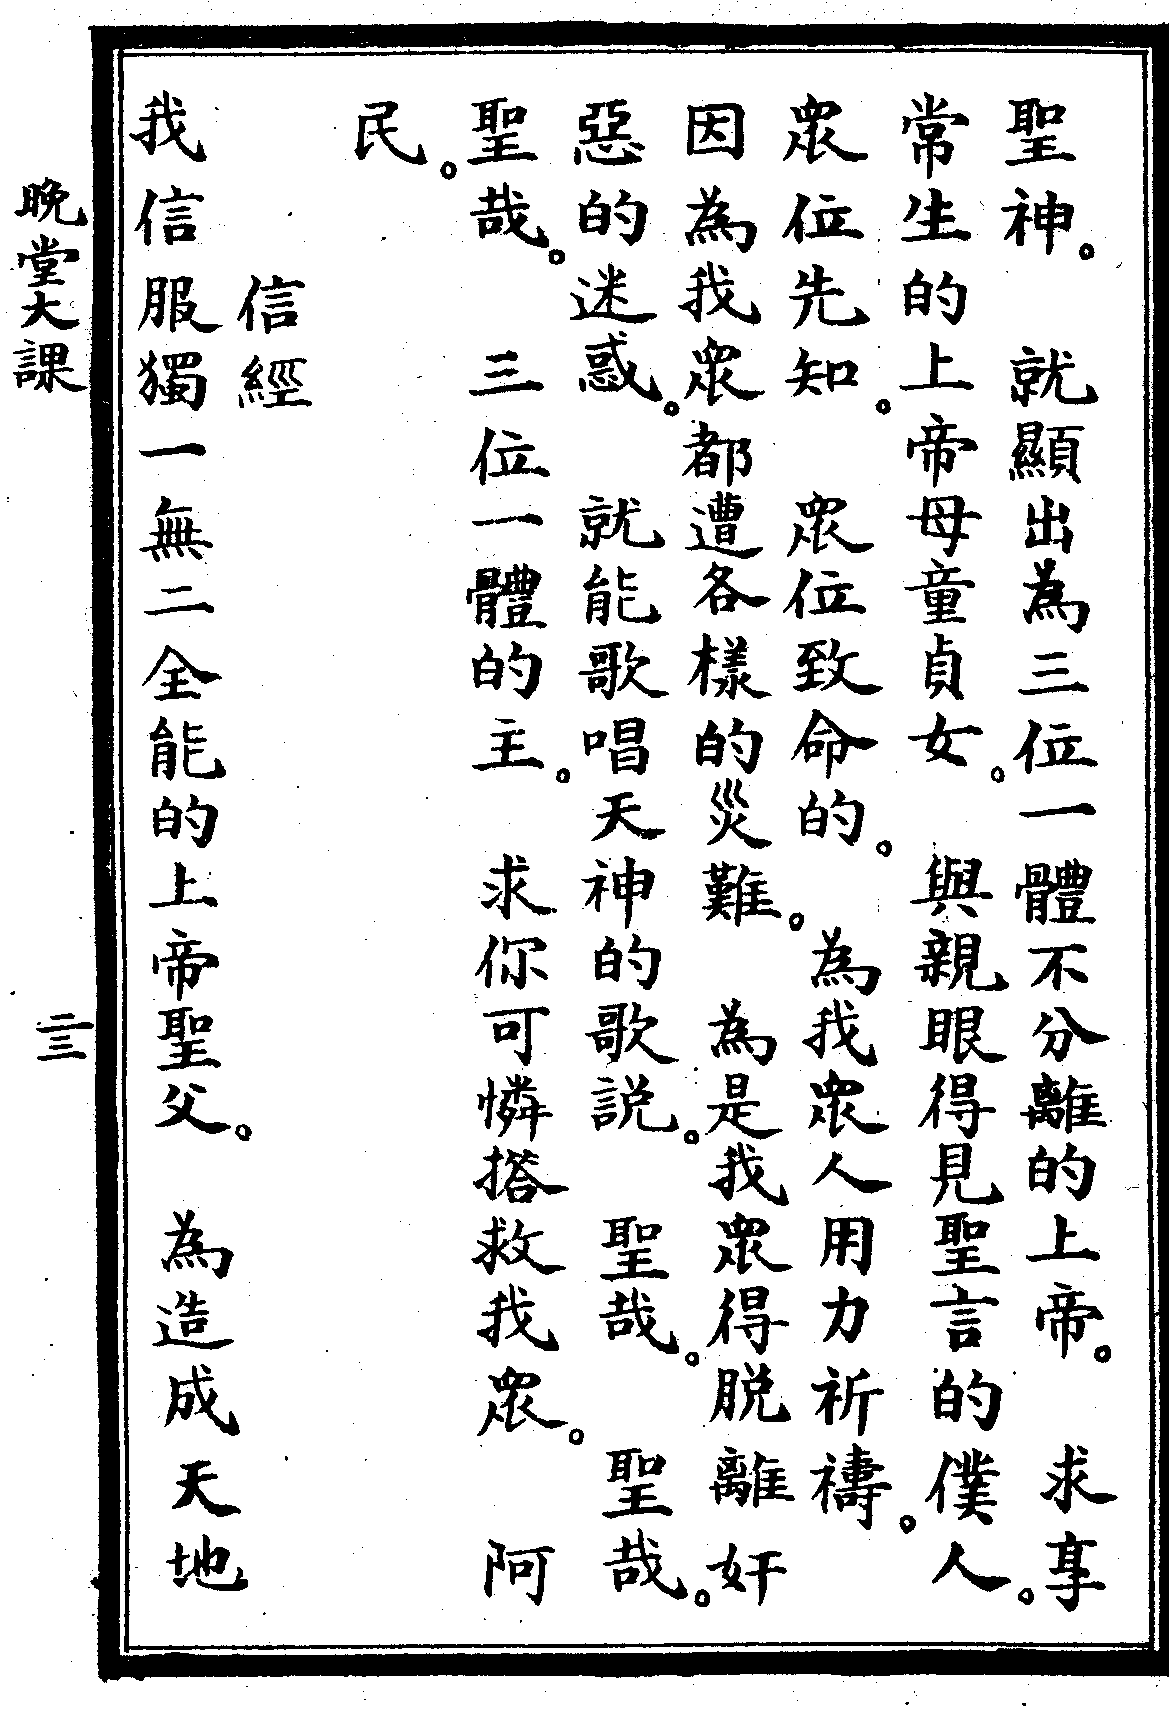 聖神。　就顯出為三位一體不分離的上帝。　求享
常生的上帝母童貞女。　與親眼得見聖言的僕人。
眾位先知。　眾位致命的。　為我眾人用力祈禱。
因為我眾都遭各樣的災難。　為是我眾得脱離奸
惡的迷惑。　就能歌唱天神的歌説。　聖哉。　聖哉。
聖哉。　三位一體的主。　求你可憐搭救我眾。　阿
民。
信經
我信服獨一無二全能的上帝聖父。　為造成天地
晚堂大課　三